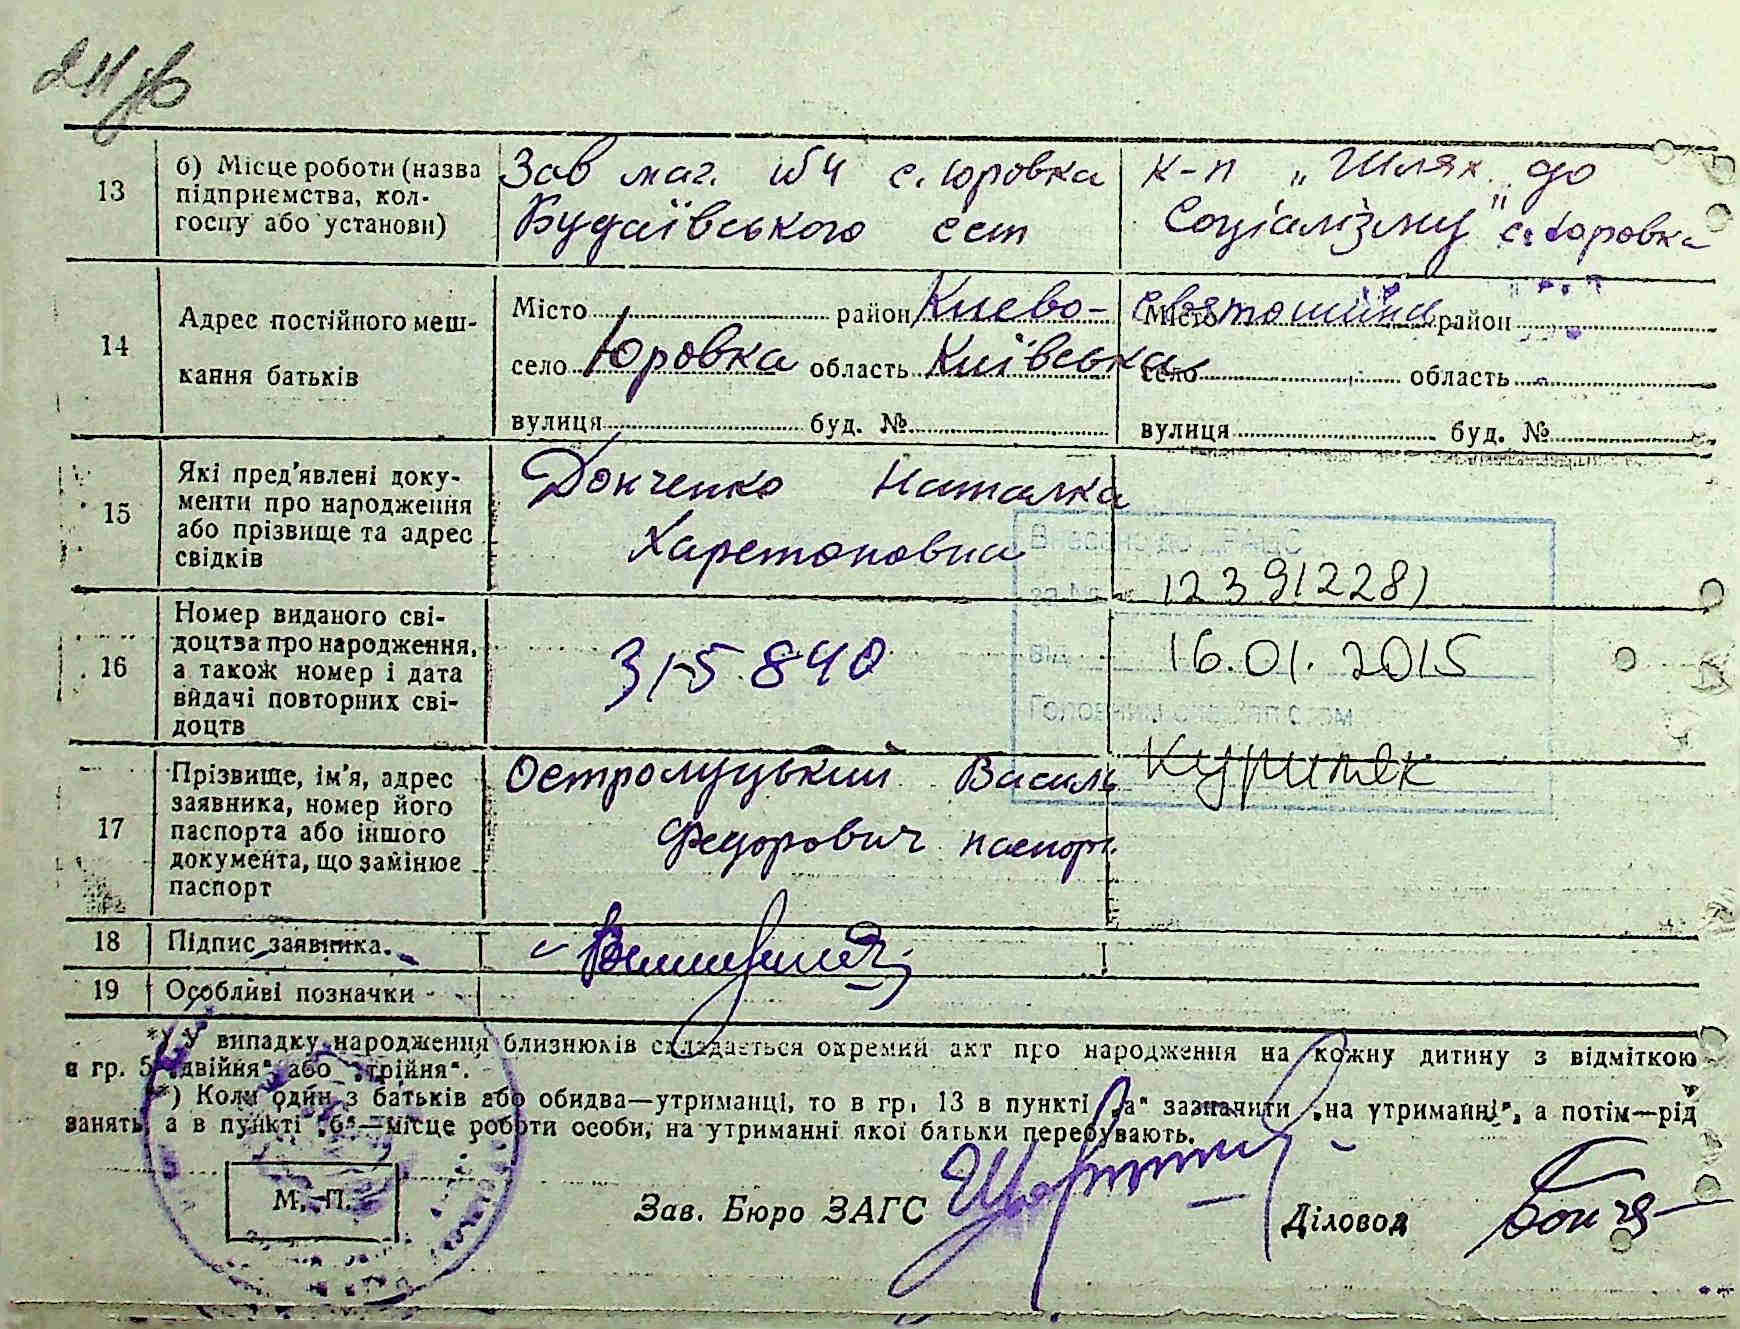 13
б) Місце роботи (назва
підприємства, кол-
госпу або установи)
Зав маг. с. Юровка
Будаївського сст
к-п „Шлях до
Соціалізму" с. Юровка
14
Адрес постійного меш-
кання батьків
Місто район Києво-Святошин
село Юровка область Київська
вулиця буд. №
Місто район
село область
вулиця буд. №
15
Які пред'явлені доку-
менти про народження
або прізвище та адрес
свідків
Донченко Наталка
Харетоновна
Внесено до ДРАЦС
за № 12391228)
від 16.01.2015
Головний спеціаліст
16
Номер виданого сві-
доцтва про народження,
а також номер і дата
видачі повторних сві-
доцтв
315840
17
Прізвище, ім'я, адрес
заявника, номер його
паспорта або іншого
документа, що замінює
паспорт
Остролуцький Василь
Федорович паспорт.
18 Підпис заявника.
19 Особливі позначки
*) У випадку народження близнюків складається окремий акт про народження на кожну дитину з відміткою
в гр. 5 „двійня" або „трійня".
**) Коли один з батьків або обидва—утриманці, то в гр. 13 в пункті „а" зазначити „на утриманні", а потім—рід
занять, а в пункті „б"—місце роботи особи, на утриманні якої батьки перебувають.
М. П.
Зав. Бюро ЗАГС
Діловод